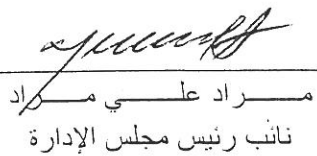 مراد علي مراد
نائب رئيس مجلس الإدارة